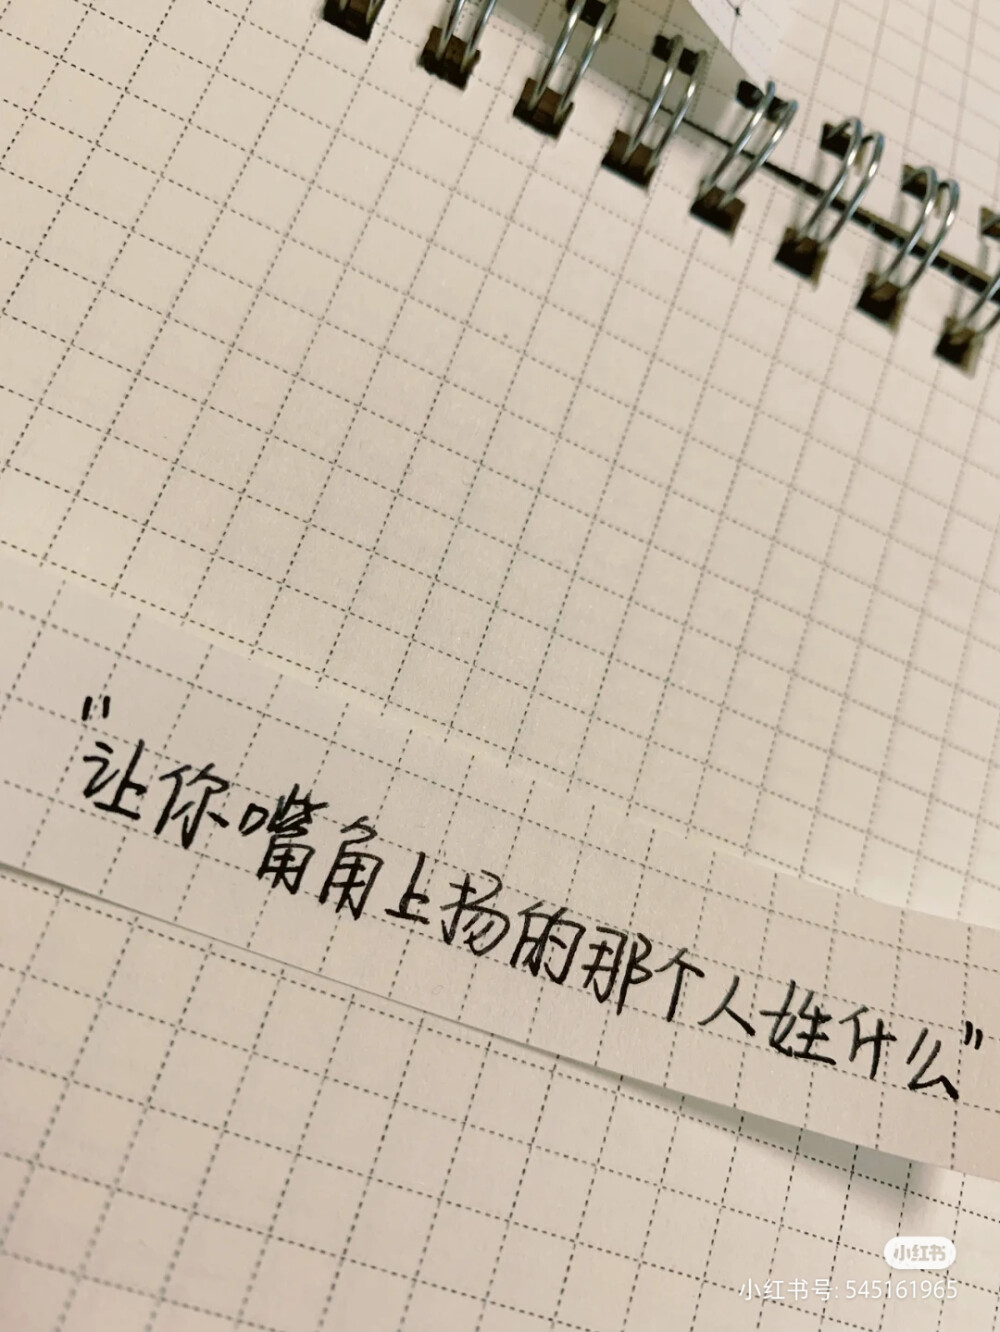 "让你嘴角上扬的那个人姓什么"
小红书
小红书号: 545161965